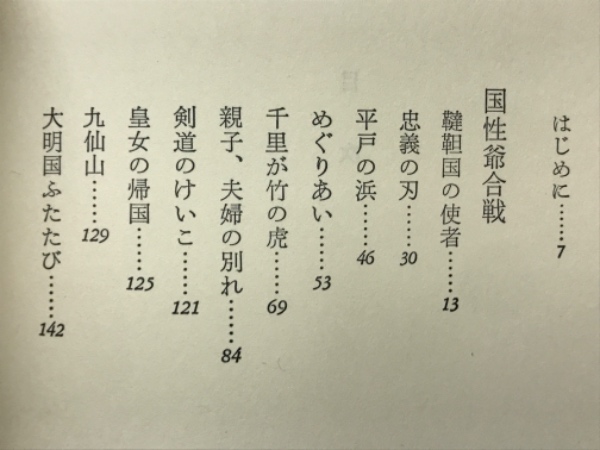 はじめに……7
国性爺合戦
韃靼国の使者……13
忠義の刃……30
平戸の浜……46
めぐりあい……53
千里が竹の虎……69
親子、夫婦の別れ……84
剣道のけいこ……121
皇女の帰国……125
九仙山……129
大明国ふたたび……142